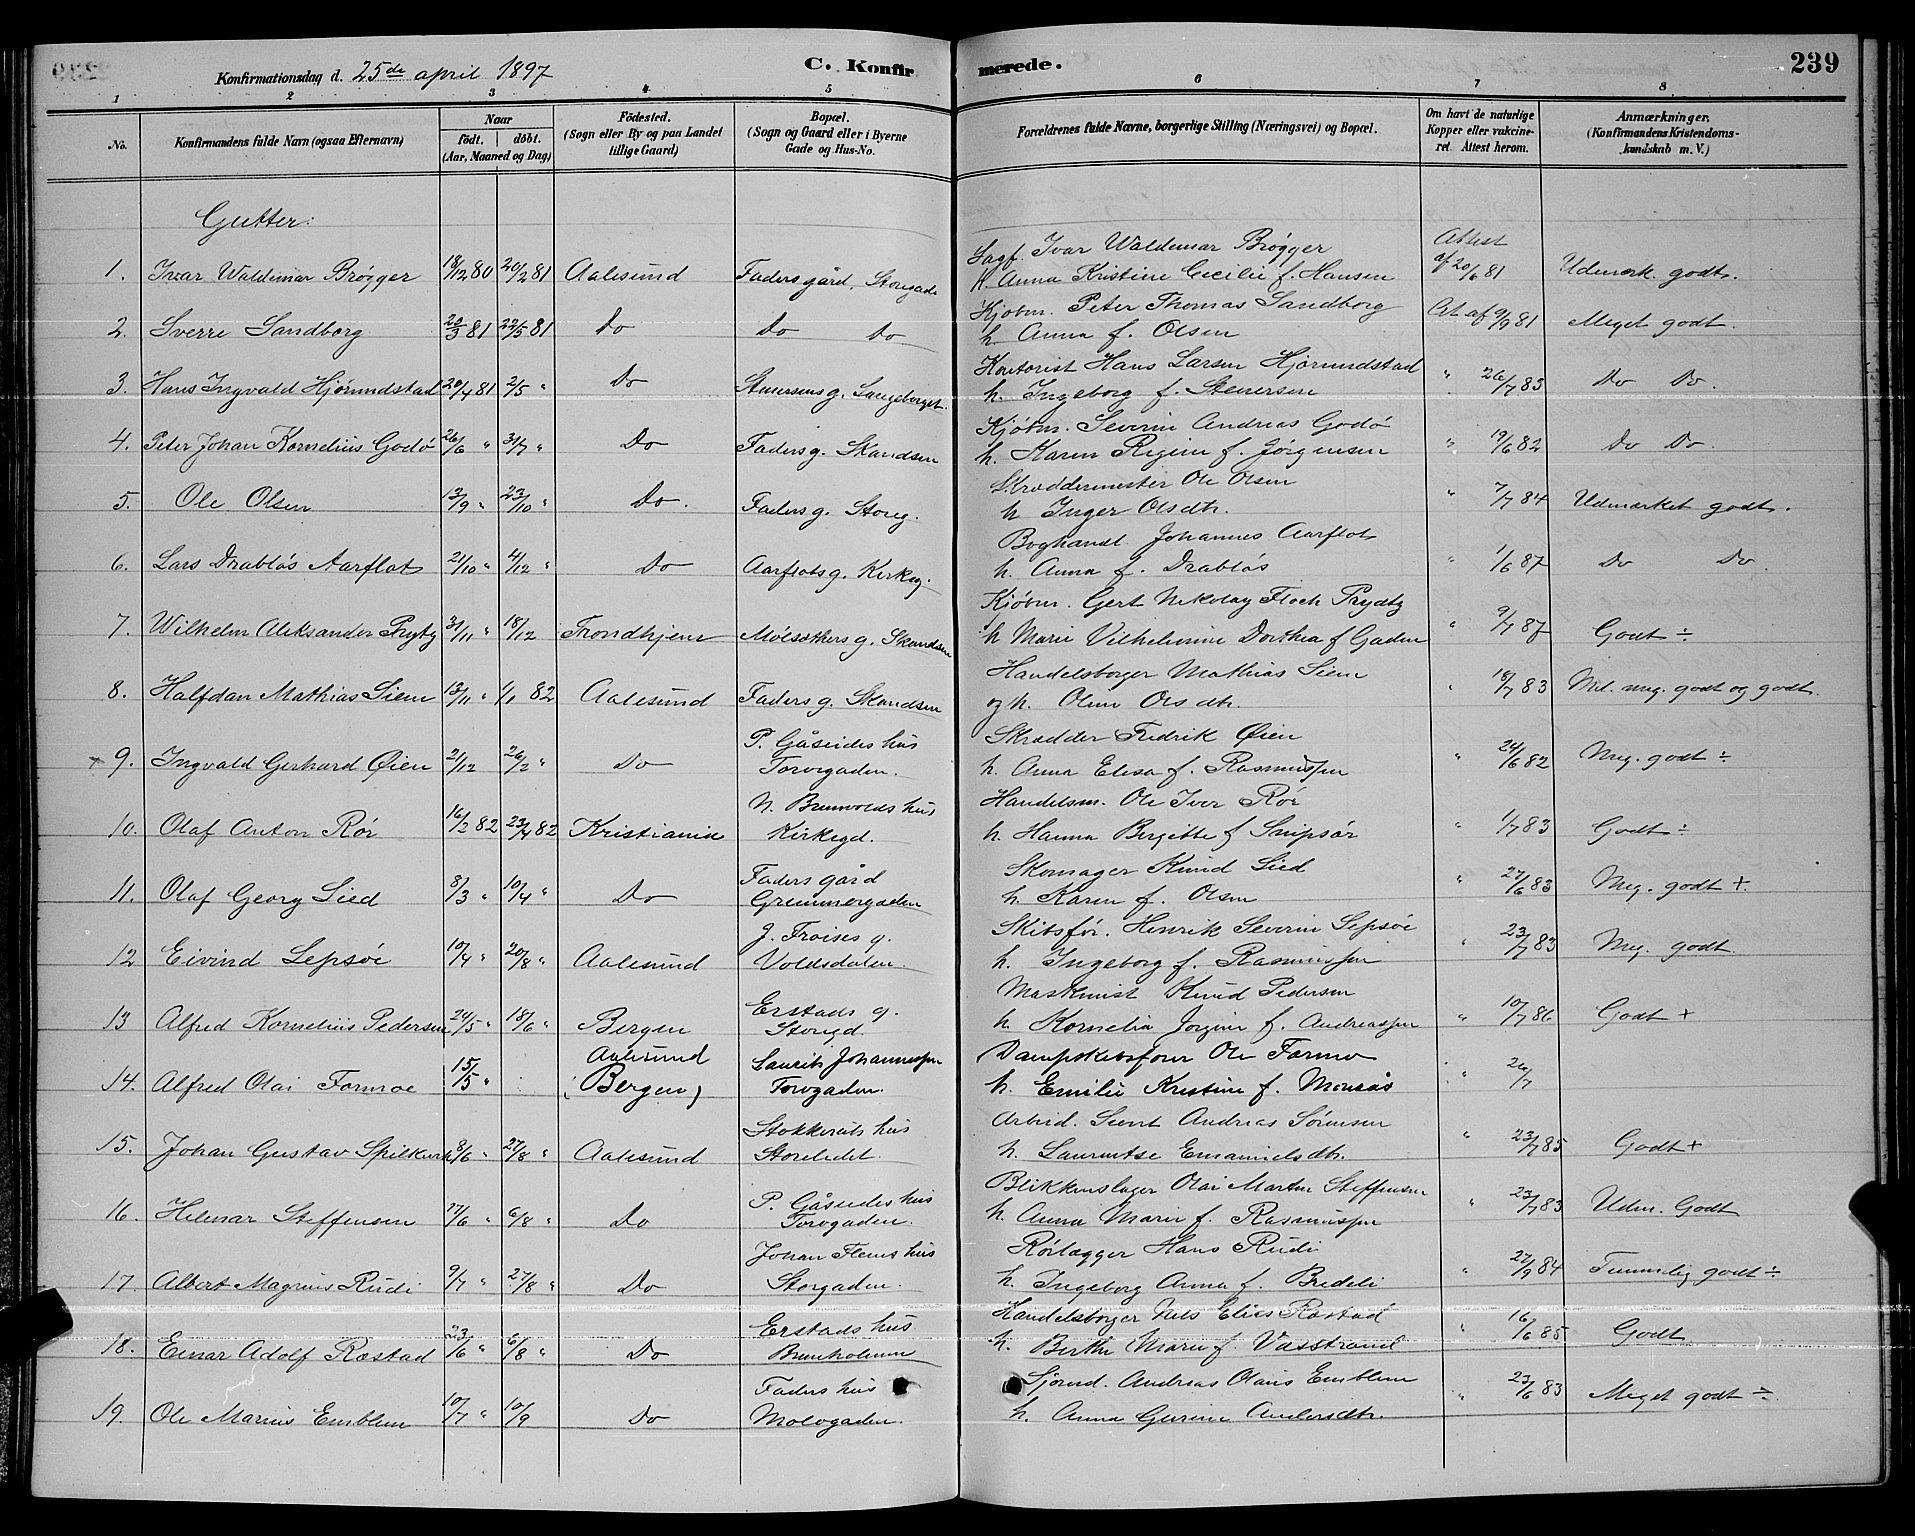 Konfirmationsdag d. 25de april 1897
C. Konfirmerede.
239
1 2 3 4 5 6 7 8
No.
Konfirmandens fulde Navn (ogsaa Efternavn)
Naar
födt. döbt.
(Aar, Maaned og Dag)
Födested.
(Sogn eller By og paa Landet
tillige Gaard)
Bopæl.
(Sogn og Gaard eller i Byerne
Gade og Hus-No.
Forældrenes fulde Navne, borgerlige Stilling (Næringsvei) og Bopæl.
Om havt de naturlige
Kopper eller vakcine-
ret. Attest herom.
Anmærkninger.
(Konfirmandens Kristendoms-
kundskab m. V.)
Gutter:
Sagf. Ivar Waldemar Brøgger Attest
1. Ivar Waldemar Brøgger 18/12 80 20/2 81 Aalesund Faders gård, Storgade h. Anna Kristine Cecilie f. Hansen af 20/6 81 Udmærk. godt.
Kjøbm. Peter Thomas Sandborg
2. Sverre Sandborg 20/3 81 22/5 81 Do Do Do h. Anna f. Olsen At af 9/9 81 Meget godt.
Kontorist Hans Larsen Hjørundstad
3. Hans Ingvald Hjørundstad 20/4 81 2/5 " Do g. h. Ingeborg f. Stenersen " 26/7 83 Do Do.
Kjøbm. Severin Andreas Godø
4. Peter Johan Kornelius Godø 26/6 " 31/7 " Do Faders g. Skandsen h. Karen Regine f. Jørgensen " 19/6 82 Do Do.
Skræddermester Ole Olsen
5. Ole Olsen 13/9 " 23/10 " Do. Faders g. Storg. h Inger Olsdtr. " 7/7 84 Udmærket godt.
Boghandl. Johannes Aarflot
6. Lars Drabløs Aarflot 21/10 " 4/12 " Do Aarflots g. Kirkeg. h. Anna f. Drabløs " 1/6 87 Do Do.
Kjøbm. Gert Nikolay Floch Prydtz
7. Wilhelm Aleksander Prytz 31/11 " 18/12 Trondhjem g. Skandsen h Marie Vilhelmine Dorthea f Gaden " 9/7 87 Godt ÷
Handelsborger Mathias Siem
8. Halfdan Mathias Siem 13/11 " 1/1 82 Aalesund Faders g. Skandsen og h. Oline Olsdtr. " 18/7 83 Mel. meg. godt og godt.
P. Gåseides hus Skrædder Fredrik Øien
+ 9. Ingvald Gerhard Øien 21/12 26/2 " Do Torvgaden. h. Anna Elisa f. Rasmussen " 24/6 82 Meg. godt ÷
N. Brunvolds hus Handelsm. Ole Iver Rør
10. Olaf Anton Rør 16/2 82 23/4 82 Kristiania Kirkegd. h. Hanna Bergitte f Snipsør " 1/7 83 Godt ÷
Faders gård Skomager Knud Lied
11. Olaf Georg Lied 8/3 " 10/4 " Do Grimmergaden h. Karen f. Olsen " 27/6 83 Meg. godt +
J. Froises g. Skibsfør. Henrik Severin Lepsøe
12 Eivind Lepsøe 10/4 " 20/8 " Aalesund Voldsdalen. h. Ingeborg f. Rasmussen " 23/7 83 Meg. godt
Erstads g. Maskinist Knud Pedersen
13 Alfred Kornelius Pedersen 24/5 " 18/6 " Bergen Storgd. h. Kornelia Jorgine f. Andreassen " 10/7 86 Godt +
Aalesund Lauritz Johannessen Dampskibsfører Ole Formo
14. Alfred Olai Formoe 15/5 " (Bergen) Torvgaden. h. Emilie Kristine f. " 26/7
hus Arbeid. Sivert Andreas Sørensen
15. Johan Gustav 8/6 " 27/8 " Aalesund Storeledet. h. Laurentse Emanielsdtr. " 23/7 85 Godt +
P. Gåseides hus Blikkenslager Olai Martin Steffensen
16. Helmar Steffensen 17/6 " 6/8 " Do Torvgaden. h. Anna Marie f. Rasmussen " 23/7 83 Udm. Godt
Johan Flems hus Rørlægger Hans Rudi
17. Albert Magnus Rudi 9/7 " 27/8 " Do Storgaden. h. Ingeborg Anna f. Bredeli " 27/9 84 Temmelig godt ÷
Erstads hus Handelsborger Nils Elias Røstad
18. Einar Adolf Røstad 23/6 " 6/8 " Do Brunholmen h. Berthe Marie f. Vasstrand " 16/6 85 Godt
Faders hus Sjømd. Andreas Olaus Emblem
19. Ole Marius Emblem 10/7 " 10/9 Do Mologaden. h. Anna Gurine Andersdtr. " 23/6 83 Meget godt ÷